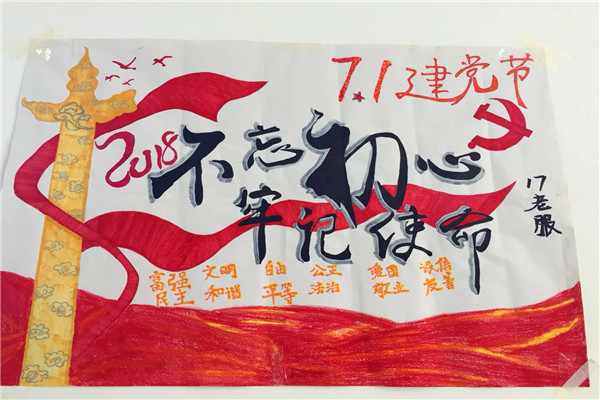 7.1建党节
2018
不忘初心
牢记使命
17老服
富强 文明 自由 公正 爱国 诚信
民主 和谐 平等 法治 敬业 友善